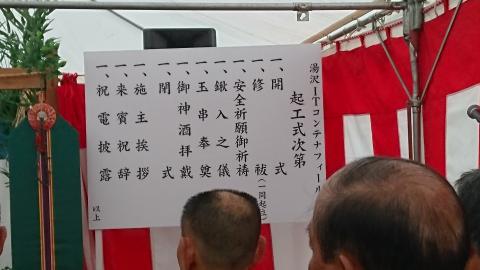 湯沢ITコンテナフィール
起工式次第
一、開式
一、修祓(一同起立)
一、安全祈願御祈祷
一、鍬入之儀
一、玉串奉奠
一、御神酒拝戴
一、閉式
一、施主挨拶
一、来賓祝辞
一、祝電披露
以上